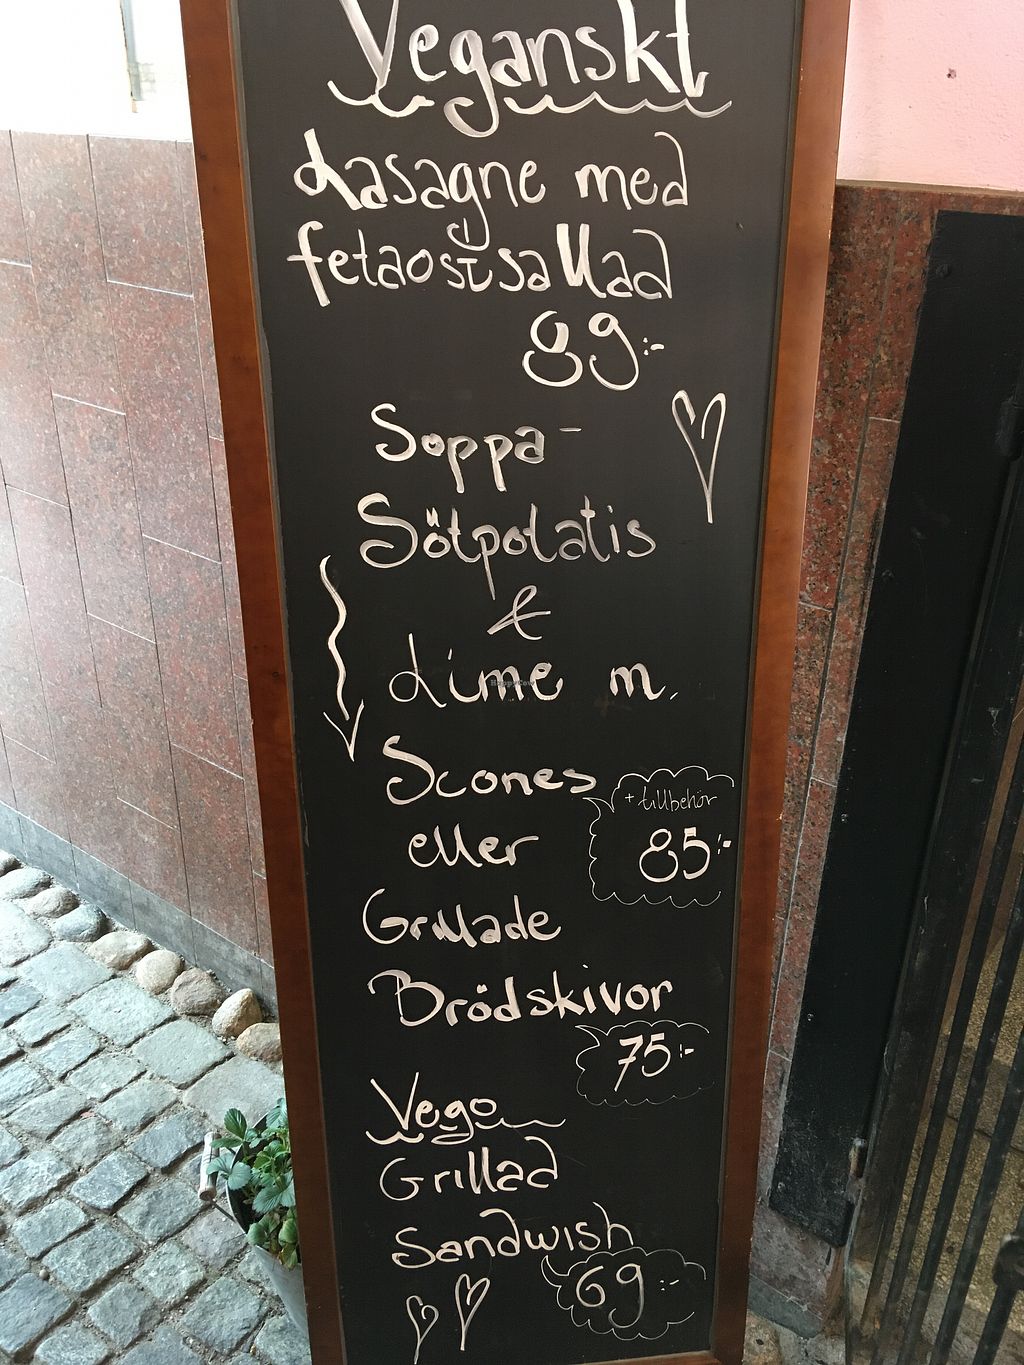 Veganskt
Lasagne med
fetaostsallad
89:-
Soppa-
Sötpotatis
&
Lime m.
Scones
+ tillbehör
85:-
eller
Grillade
Brödskivor
75:-
Vego
Grillad
Sandwish
69:-
HappyCow